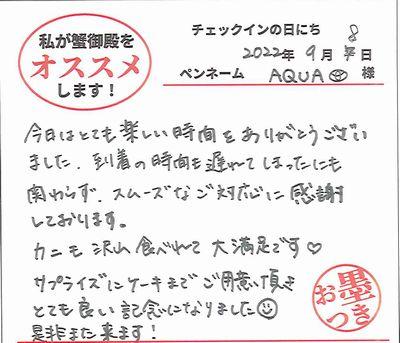 私が蟹御殿を
オススメ
します！
チェックインの日にち
2022年 9月 8日
ペンネーム AQUA 様
今日はとても楽しい時間をありがとうござい
ました。到着の時間も遅れてしまったにも
関わらず、スムーズなご対応に感謝
しております。
カニも沢山食べれて大満足です♡
サプライズにケーキまでご用意頂き
とても良い記念になりました☺
是非また来ます！
お墨つき